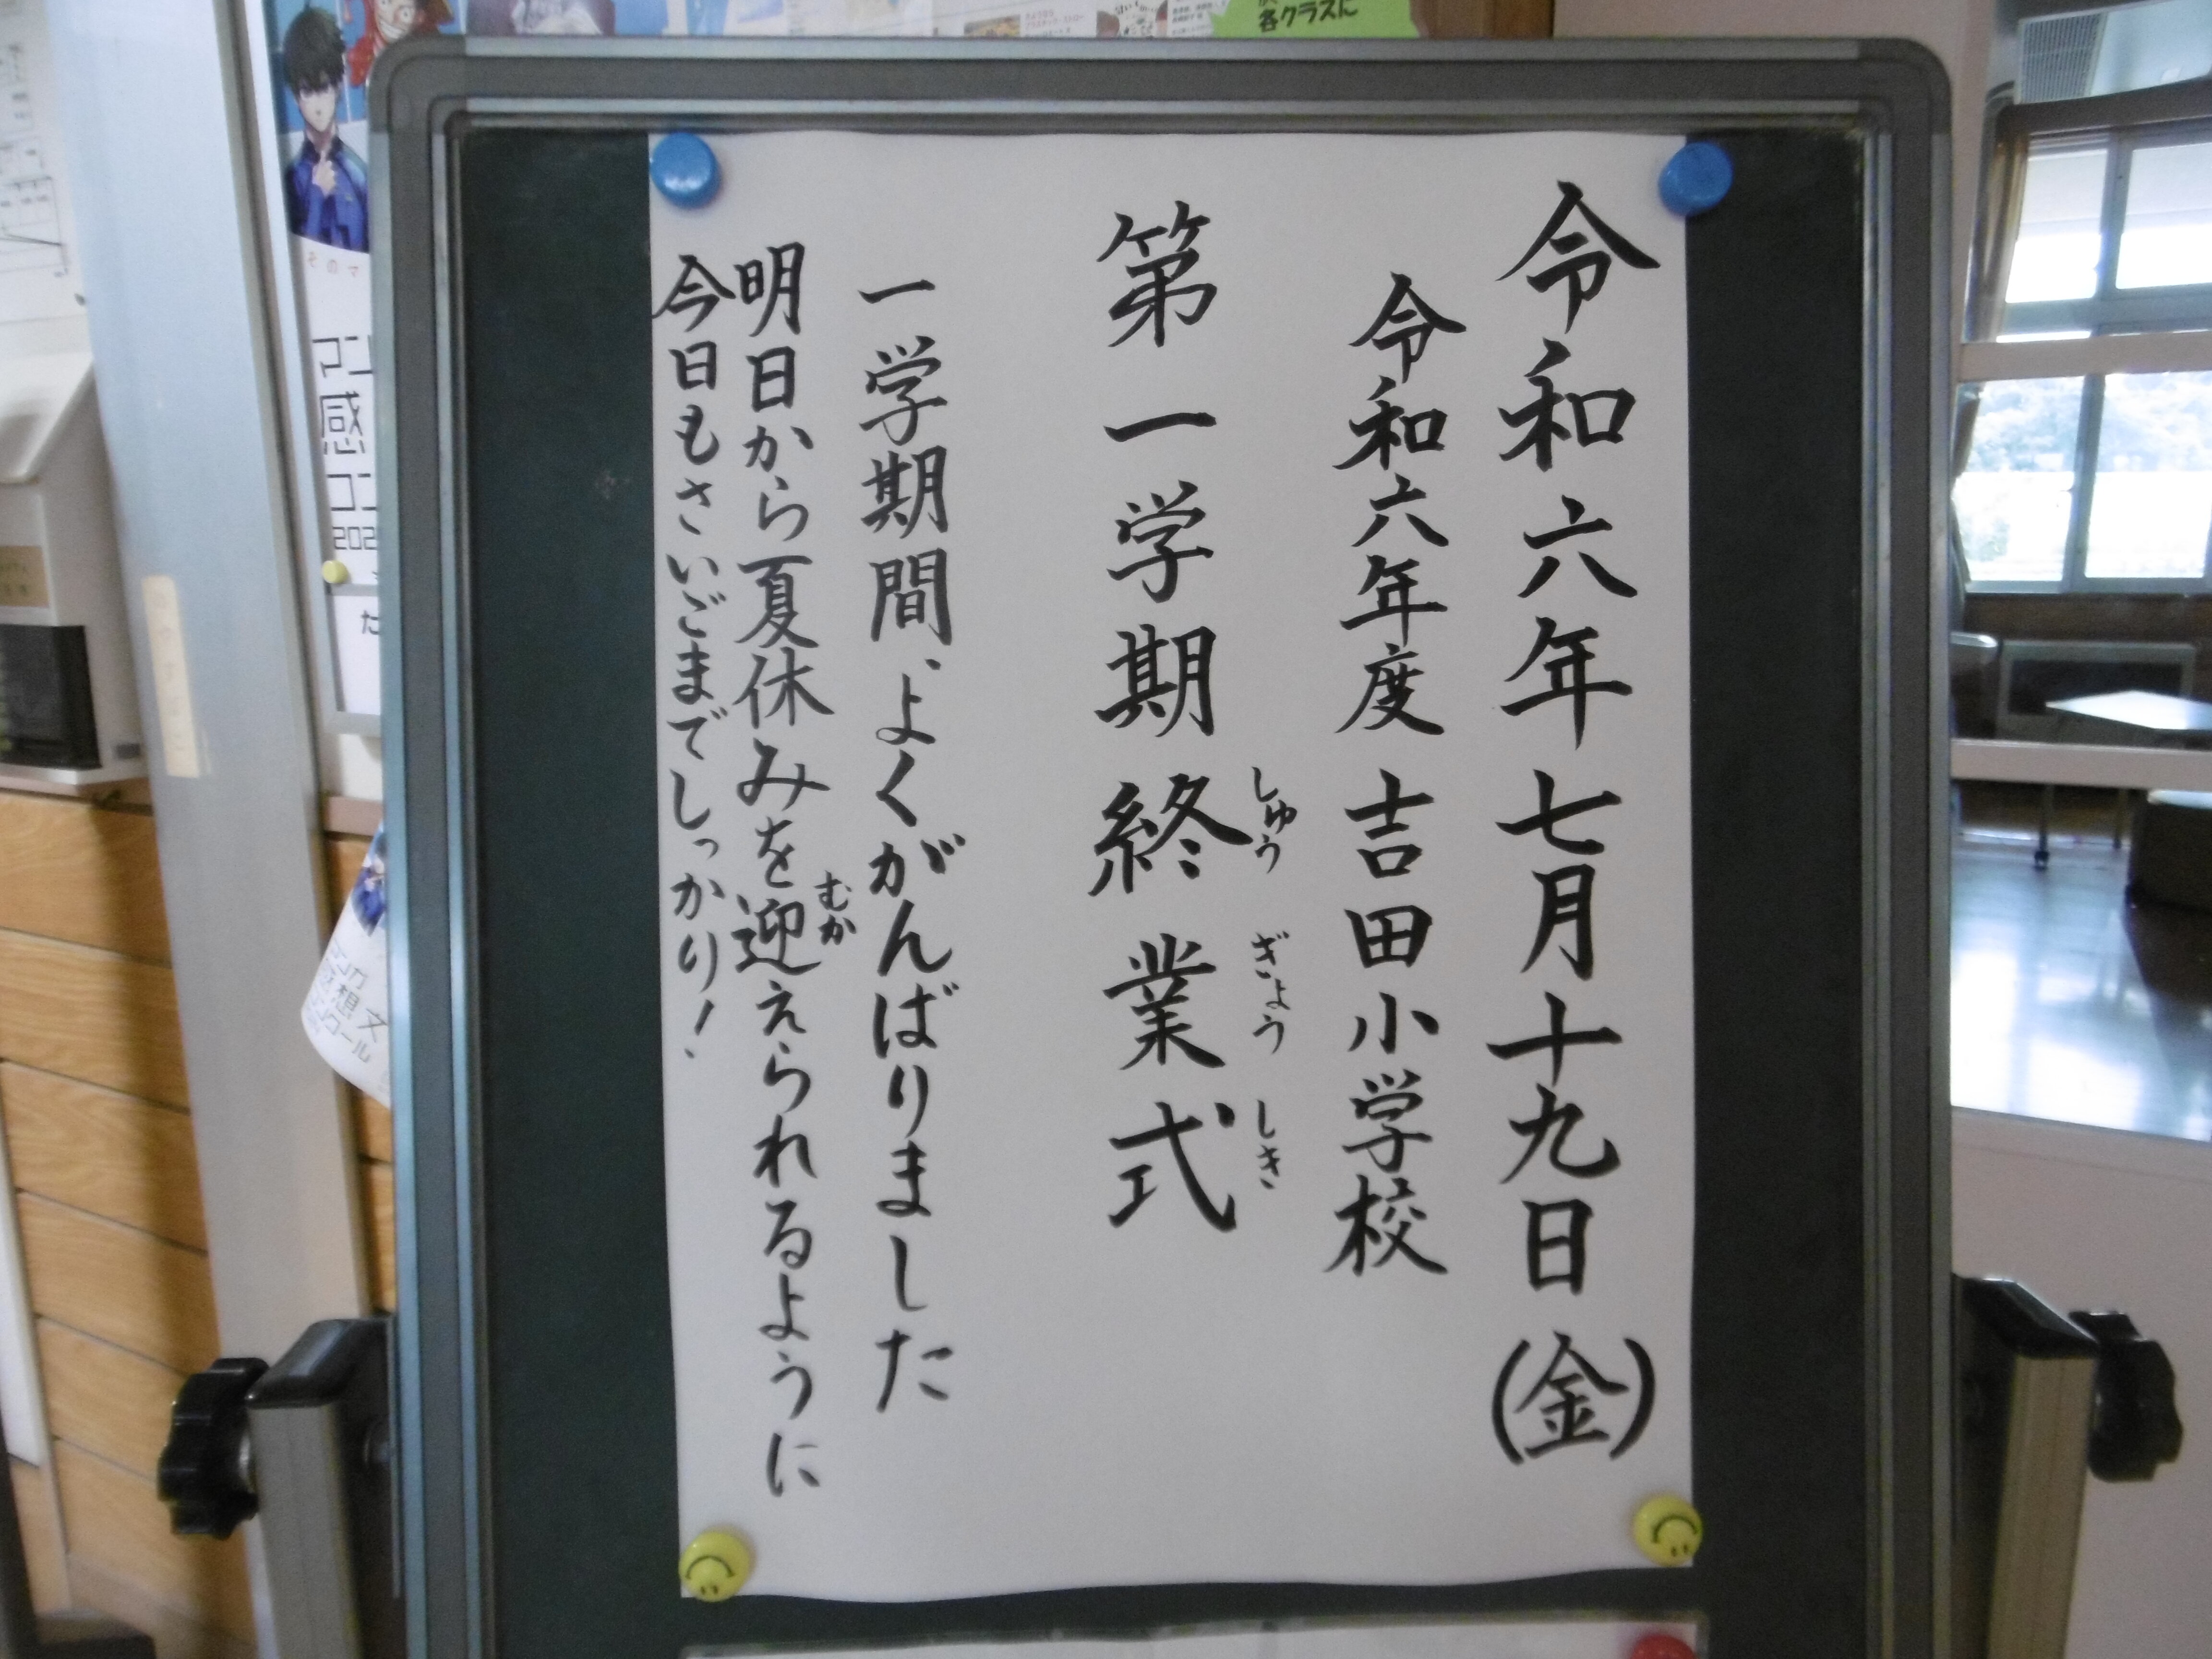 令和六年七月十九日(金)
令和六年度 吉田小学校
第一学期終業式
しゅう ぎょう しき
一学期間、よくがんばりました
明日から夏休みを迎えられるように
むか
今日もさいごまでしっかり!
各クラスに
そのマ
マン
感
コン
202
た
マンガ
感想文
コンクール